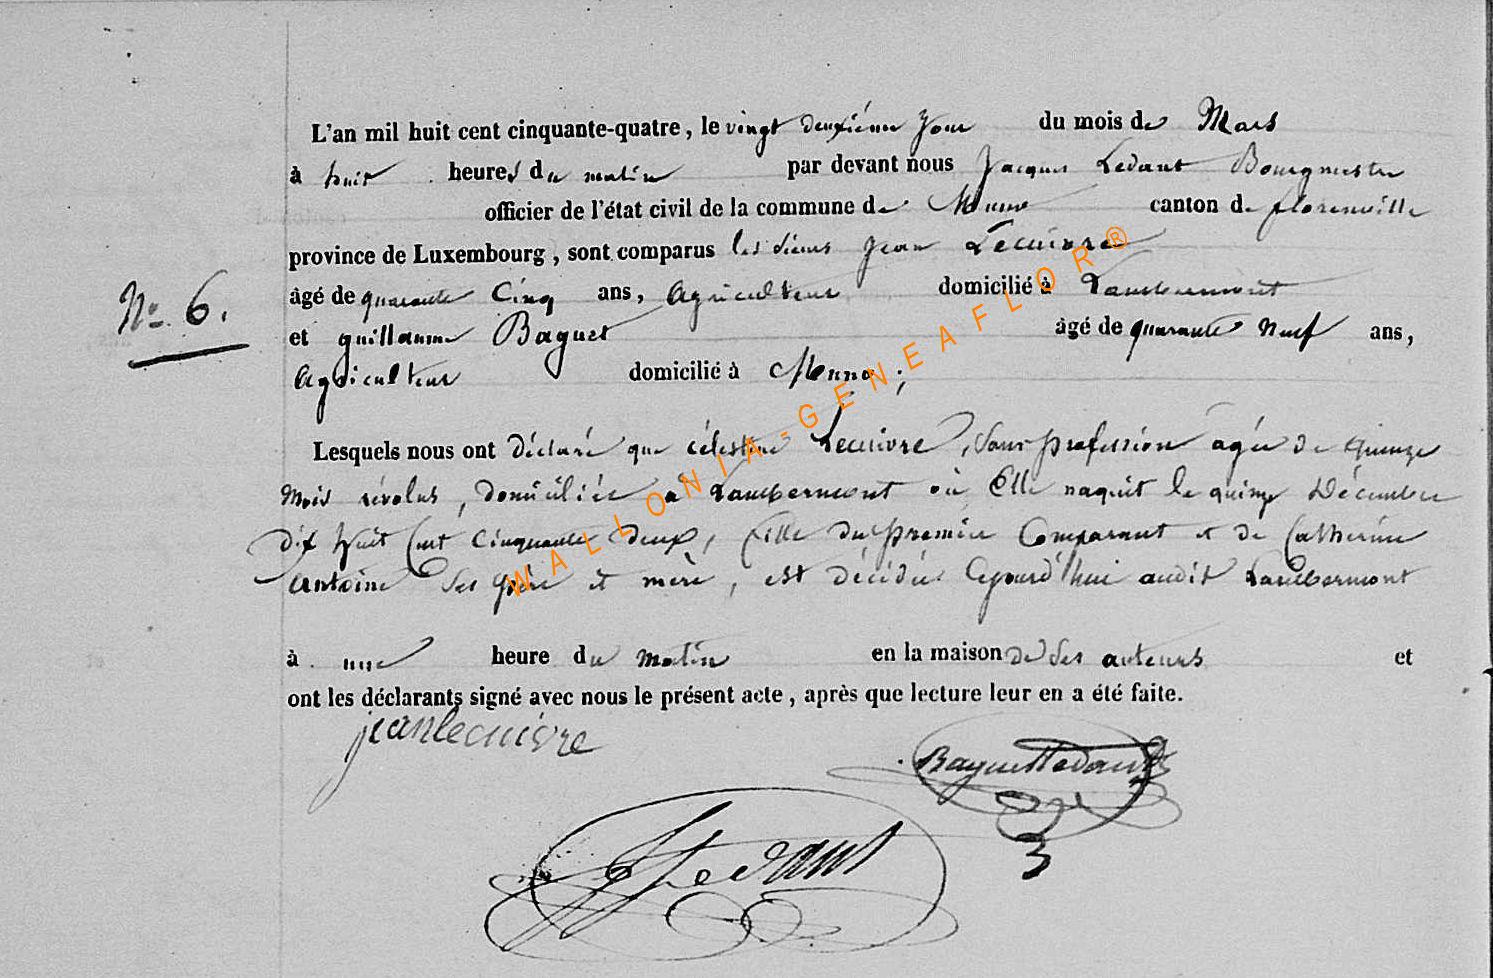 L'an mil huit cent cinquante-quatre, le vingt deuxième jour du mois de Mars
à huit heures du matin par devant nous Jacques Ledant Bourgmestre
officier de l'état civil de la commune de Muno canton de florenville
province de Luxembourg, sont comparus les sieurs Jean Lecuivre
âgé de quarante Cinq ans, Agriculteur domicilié à Lambermont
N° 6.
et guillaume Baguet âgé de quarante Neuf ans,
Agriculteur domicilié à Muno;
Lesquels nous ont déclaré que célestine Lecuivre, Sans profession agée de quinze
Mois révolus, domiciliée à Lambermont où Elle naquit le quinze Décembre
dix huit Cent Cinquante deux, fille du premier Comparant et de Catherine
Antoine Ses père et mère, est décédée Cejourd'hui audit Lambermont
à une heure du Matin en la maison de Ses auteurs et
ont les déclarants signé avec nous le présent acte, après que lecture leur en a été faite.
jean lecuivre
Baguet
Ledant
WALLONIA-GENEAFLOR®